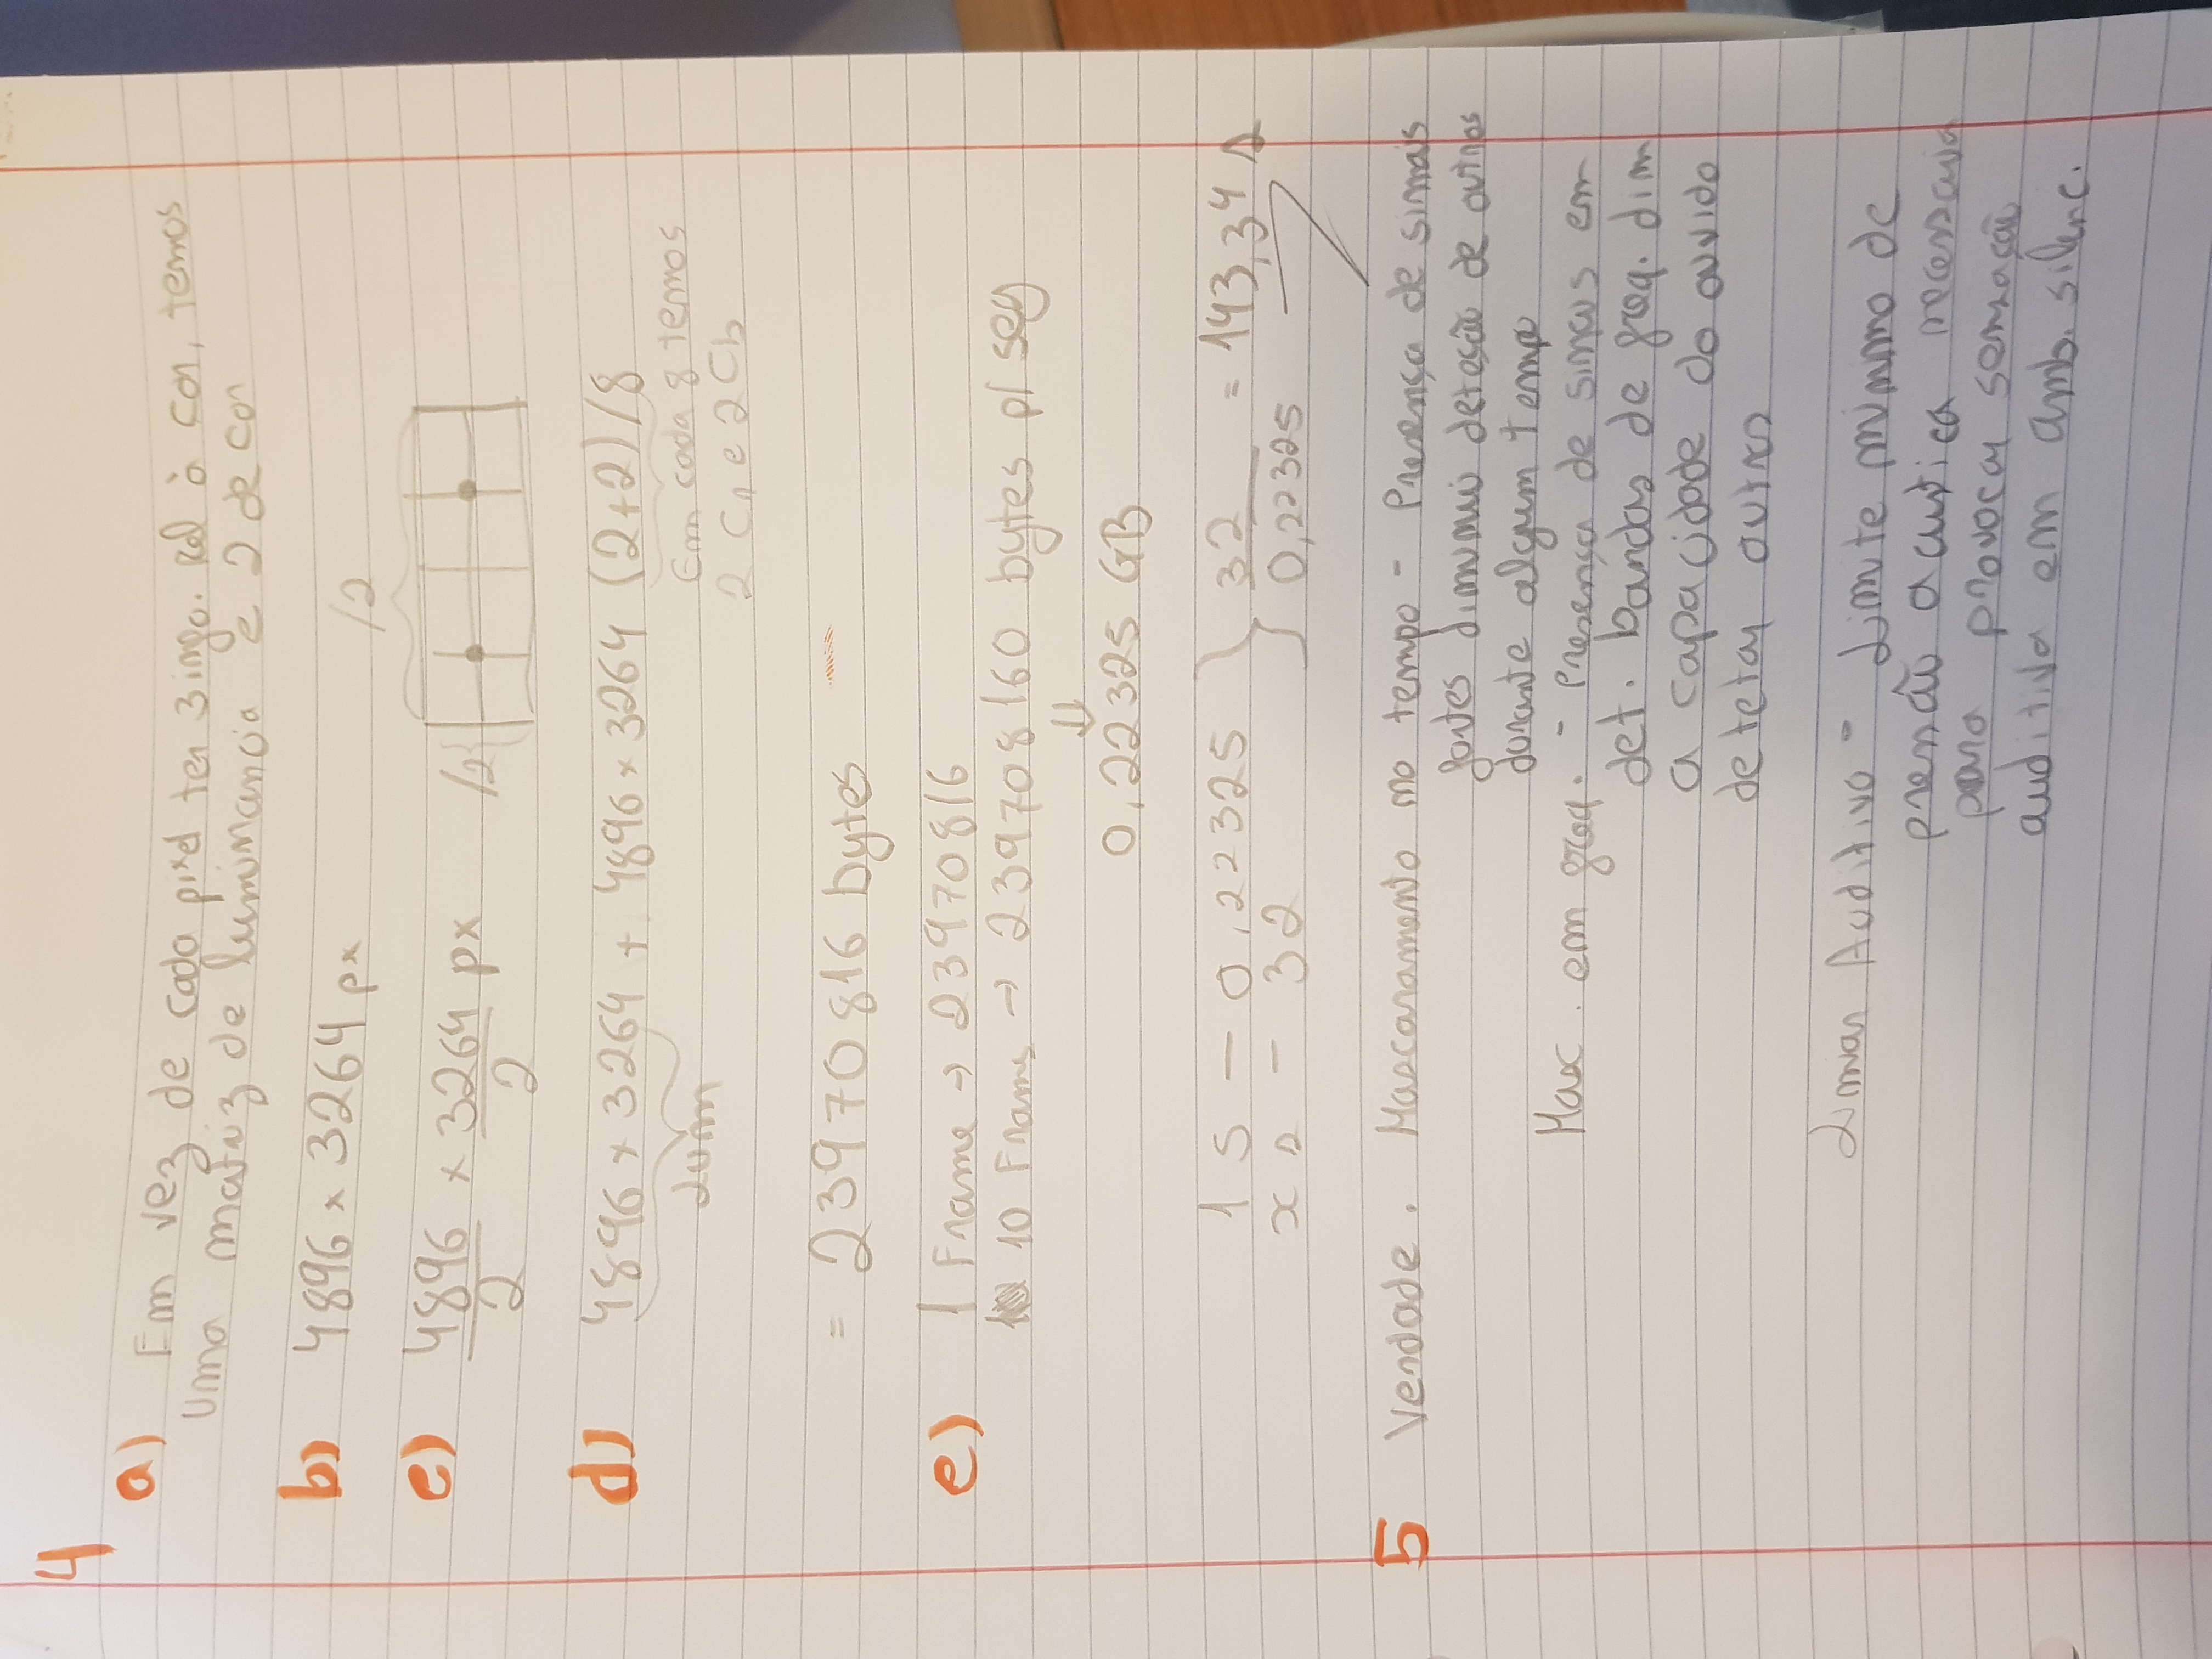 4
a) Em vez de cada pixel ter 3 info. Rel à cor, temos
uma matriz de luminancia e 2 de cor
b) 4896 x 3264 px
/2
c) 4896/2 x 3264/2 px /2
d) 4896 x 3264 + 4896 x 3264 (2+2)/8
Lum Em cada 8 temos
2 Cr e 2 Cb
= 23970816 bytes
e) 1 Frame → 23970816
10 Frames → 239708160 bytes p/ seg
⇓
0,22325 GB
1 s — 0,22325 } 32/0,22325 = 143,34 s
x s — 32
5 Verdade. Mascaramento no tempo - Presença de sinais
fortes diminui deteção de outros
durante algum tempo
Masc. em freq. - Presença de sinais em
det. bandas de freq. dim
a capacidade do ouvido
detetar outros
Limiar Auditivo - Limite minimo de
pressão acustica necessaria
para provocar sensação
auditiva em amb. silenc.